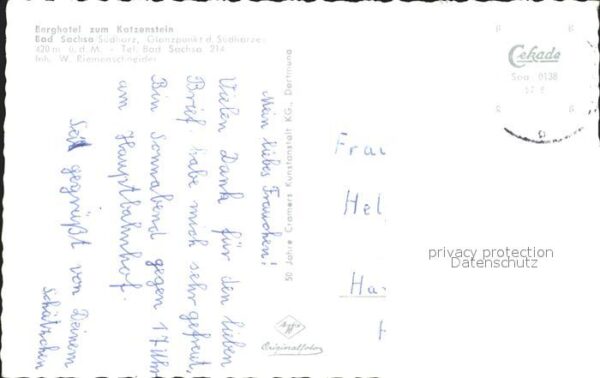 Berghotel zum Katzenstein
Bad Sachsa Südharz, Glanzpunkt d. Südharzes
420 m ü. d. M. - Tel. Bad Sachsa 214
Inh. W. Riemenschneider
Mein liebes Frauchen!
Vielen Dank für den lieben
Brief. habe mich sehr gefreut,
Bin Sonnabend gegen 17 Uhr
am Hauptbahnhof.
Sei gegrüßt von Deinem
Schätzchen
50 Jahre Cramers Kunstanstalt KG., Dortmund
Agfa
Originalfoto
Cekade
Soa 0138
Frau
Hel
Ha
privacy protection
Datenschutz